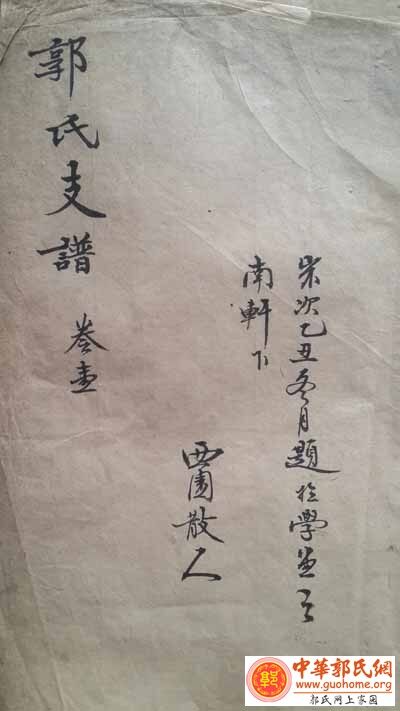 郭氏支譜 卷壹
歲次乙丑冬月題於學之
南軒下
西圃散人
中華郭氏網
www.guohome.org
郭氏网上家园